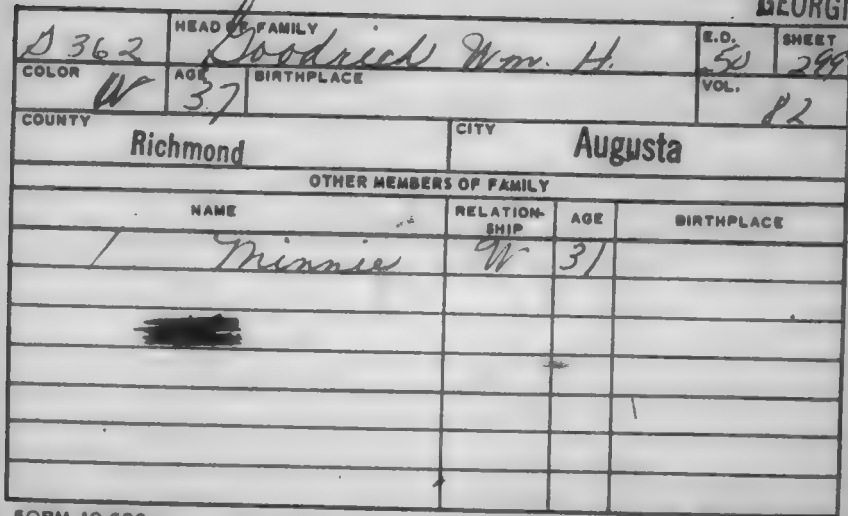 GEORGI
G 362 HEAD OF FAMILY Goodrich Wm. H. E.D. 50 SHEET 299
COLOR W AGE 37 BIRTHPLACE VOL. 82
COUNTY Richmond CITY Augusta
OTHER MEMBERS OF FAMILY
NAME RELATION-SHIP AGE BIRTHPLACE
1 Minnie W 31